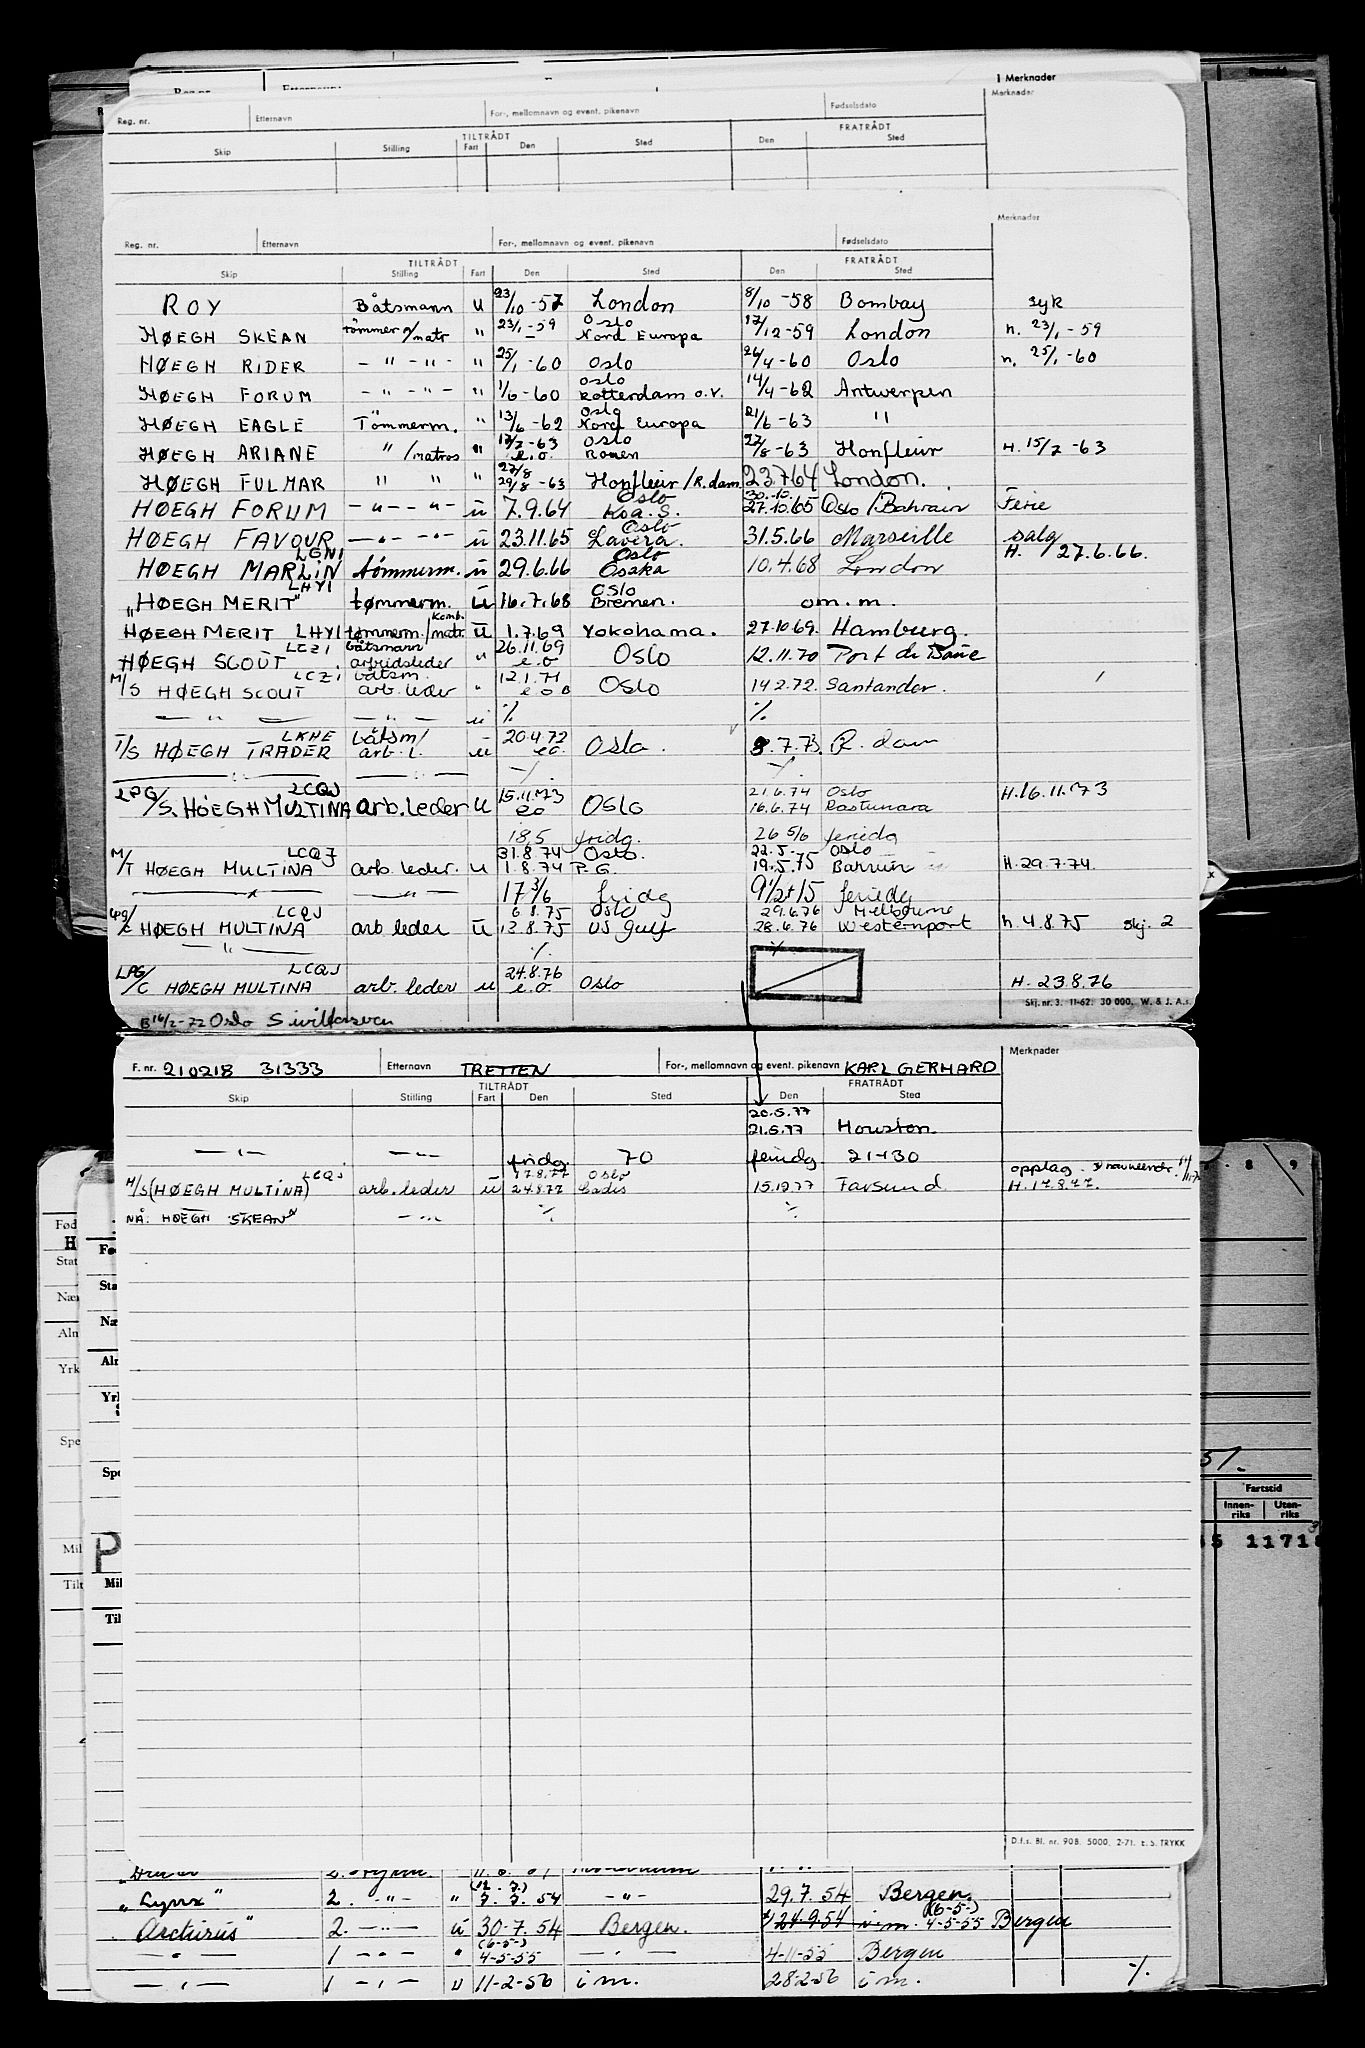 Merknader
Reg. nr. Etternavn For-, mellomnavn og event. pikenavn Fødselsdato Merknader
TILTRÅDT FRATRÅDT
Skip Stilling Fart Den Sted Den Sted
Reg. nr. Etternavn For-, mellomnavn og event. pikenavn Fødselsdato Merknader
TILTRÅDT FRATRÅDT
Skip Stilling Fart Den Sted Den Sted
ROY Båtsmann u 23/10-57 London 8/10-58 Bombay syk
HØEGH SKEAN tømmer o/matr " 23/1-59 Oslo Nord Europa 17/12-59 London n. 23/1-59
HØEGH RIDER - " - " - " 25/1-60 Oslo 26/4-60 Oslo n. 25/1-60
HØEGH FORUM - " - " - " 1/6-60 Oslo Rotterdam o.v. 14/4-62 Antwerpen
HØEGH EAGLE Tømmerm. " 13/6-62 Oslo Nord Europa 21/6-63 "
HØEGH ARIANE " /matros " 17/7-63 e.o. Oslo Rouen 27/8-63 Honfleur H. 15/7-63
HØEGH FULMAR " " " 27/8 29/8-63 Honfleur/R.dam 23764 London.
HØEGH FORUM - " - - " - u 7.9.64 Oslo Koa.S. 30.-10. 27.10.65 Oslo/Bahrain Ferie
HØEGH FAVOUR - " - - " - u 23.11.65 Oslo Lavera. 31.5.66 Marseille salg
HØEGH MARLIN LGNI tømmerm. u 29.6.66 Oslo Osaka 10.4.68 London H. 27.6.66.
"HØEGH MERIT" LHYI tømmerm. u 16.7.68 Oslo Bremen. om.m.
HØEGH MERIT LHYI tømmerm./Komb. matr. u 1.7.69 Yokohama. 27.10.69. Hamburg.
HØEGH SCOUT LCZI båtsmann arbeidsleder " 26.11.69 e.o Oslo 12.11.70 Port de
M/S HØEGH SCOUT LCZI båtsm. arb. leder " 12.1.71 e.o Oslo 14 2.72. Santander.
— " — — " — u % %
T/S HØEGH TRADER LKHE båtsm/ arb. l. u 20.4.72 e.o. Oslo. 8.7.73. R. dam
LPG/S. HØEGH MULTINA LCQJ arb. leder u 15.11.73 eo Oslo 21.6.74 Oslo 16.6.74 Rastunara H.16.11.73
18,5 fridg. 26 5/6 feriedg
M/T HØEGH MULTINA LCQJ arb. leder. u 31.8.74 Oslo. 1.8.74 P.G. 22.5.- Oslo 19.5.75 H.29.7.74.
— " — — " — 17 3/6 fridg feriedg
LPG/C HØEGH MULTINA LCQJ arb leder u 6.8.75 Oslo 12.8.75 US Gulf 29.6.76 Melbourne 28.6.76 Westernport h. 4.8.75 skj. 2
— " — % %
LPG/C HØEGH MULTINA LCQJ arb. leder u 24.8.76 e.o. Oslo H. 23.8.76
Skj. nr. 3. 11-62. 30 000. W. & J. A.s
B 16/2-72 Oslo Sivilforsvar
F. nr. 210218 31333 Etternavn TRETTEN For-, mellomnavn og event. pikenavn KARL GERHARD Merknader
TILTRÅDT FRATRÅDT
Skip Stilling Fart Den Sted Den Sted
20.5.77
21.5.77 Houston
— " — — " — fridg 70 feriedg 21+30
M/S (HØEGH MULTINA) LCQJ arb. leder u 17.8.77 Oslo 24.8.77 Cadis 15.12.77 Farsund opplag. H. 17.8.77.
NÅ: HØEGH SKEAN — " — % %
D.f.s. Bl. nr. 908. 5000. 2-71. E.S. TRYKK
"Lynx" 2. - " - " (12.7.) 7.7.54 - " - 29.7.54 Bergen.
Arcturus" 2. - " - u 30.7.54 Bergen. 24.9.54 i.m. (6-5-) 4-5-55 Bergen
— " — 1 - " - " (6-5-) 4-5-55 — " — 4-11-55 Bergen
— " — 1 - " - u 11-2-56 i m. 28-2-56 i m. %
Fartstid
Innen-riks Uten-riks
1171